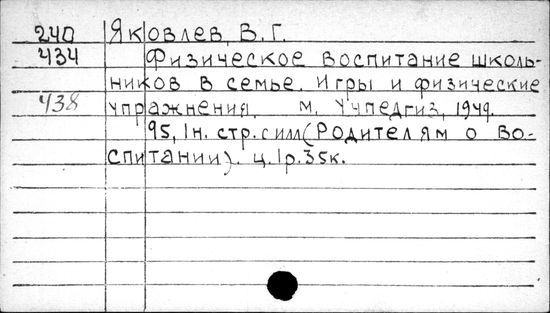 240 Яковлев, В. Г.
434 Физическое воспитание школь-
ников в семье. Игры и физические
438 упражнения. М. Учпедгиз, 1949.
95, 1н. стр. с илл (Родителям о во-
спитании). ц. 1р. 35к.